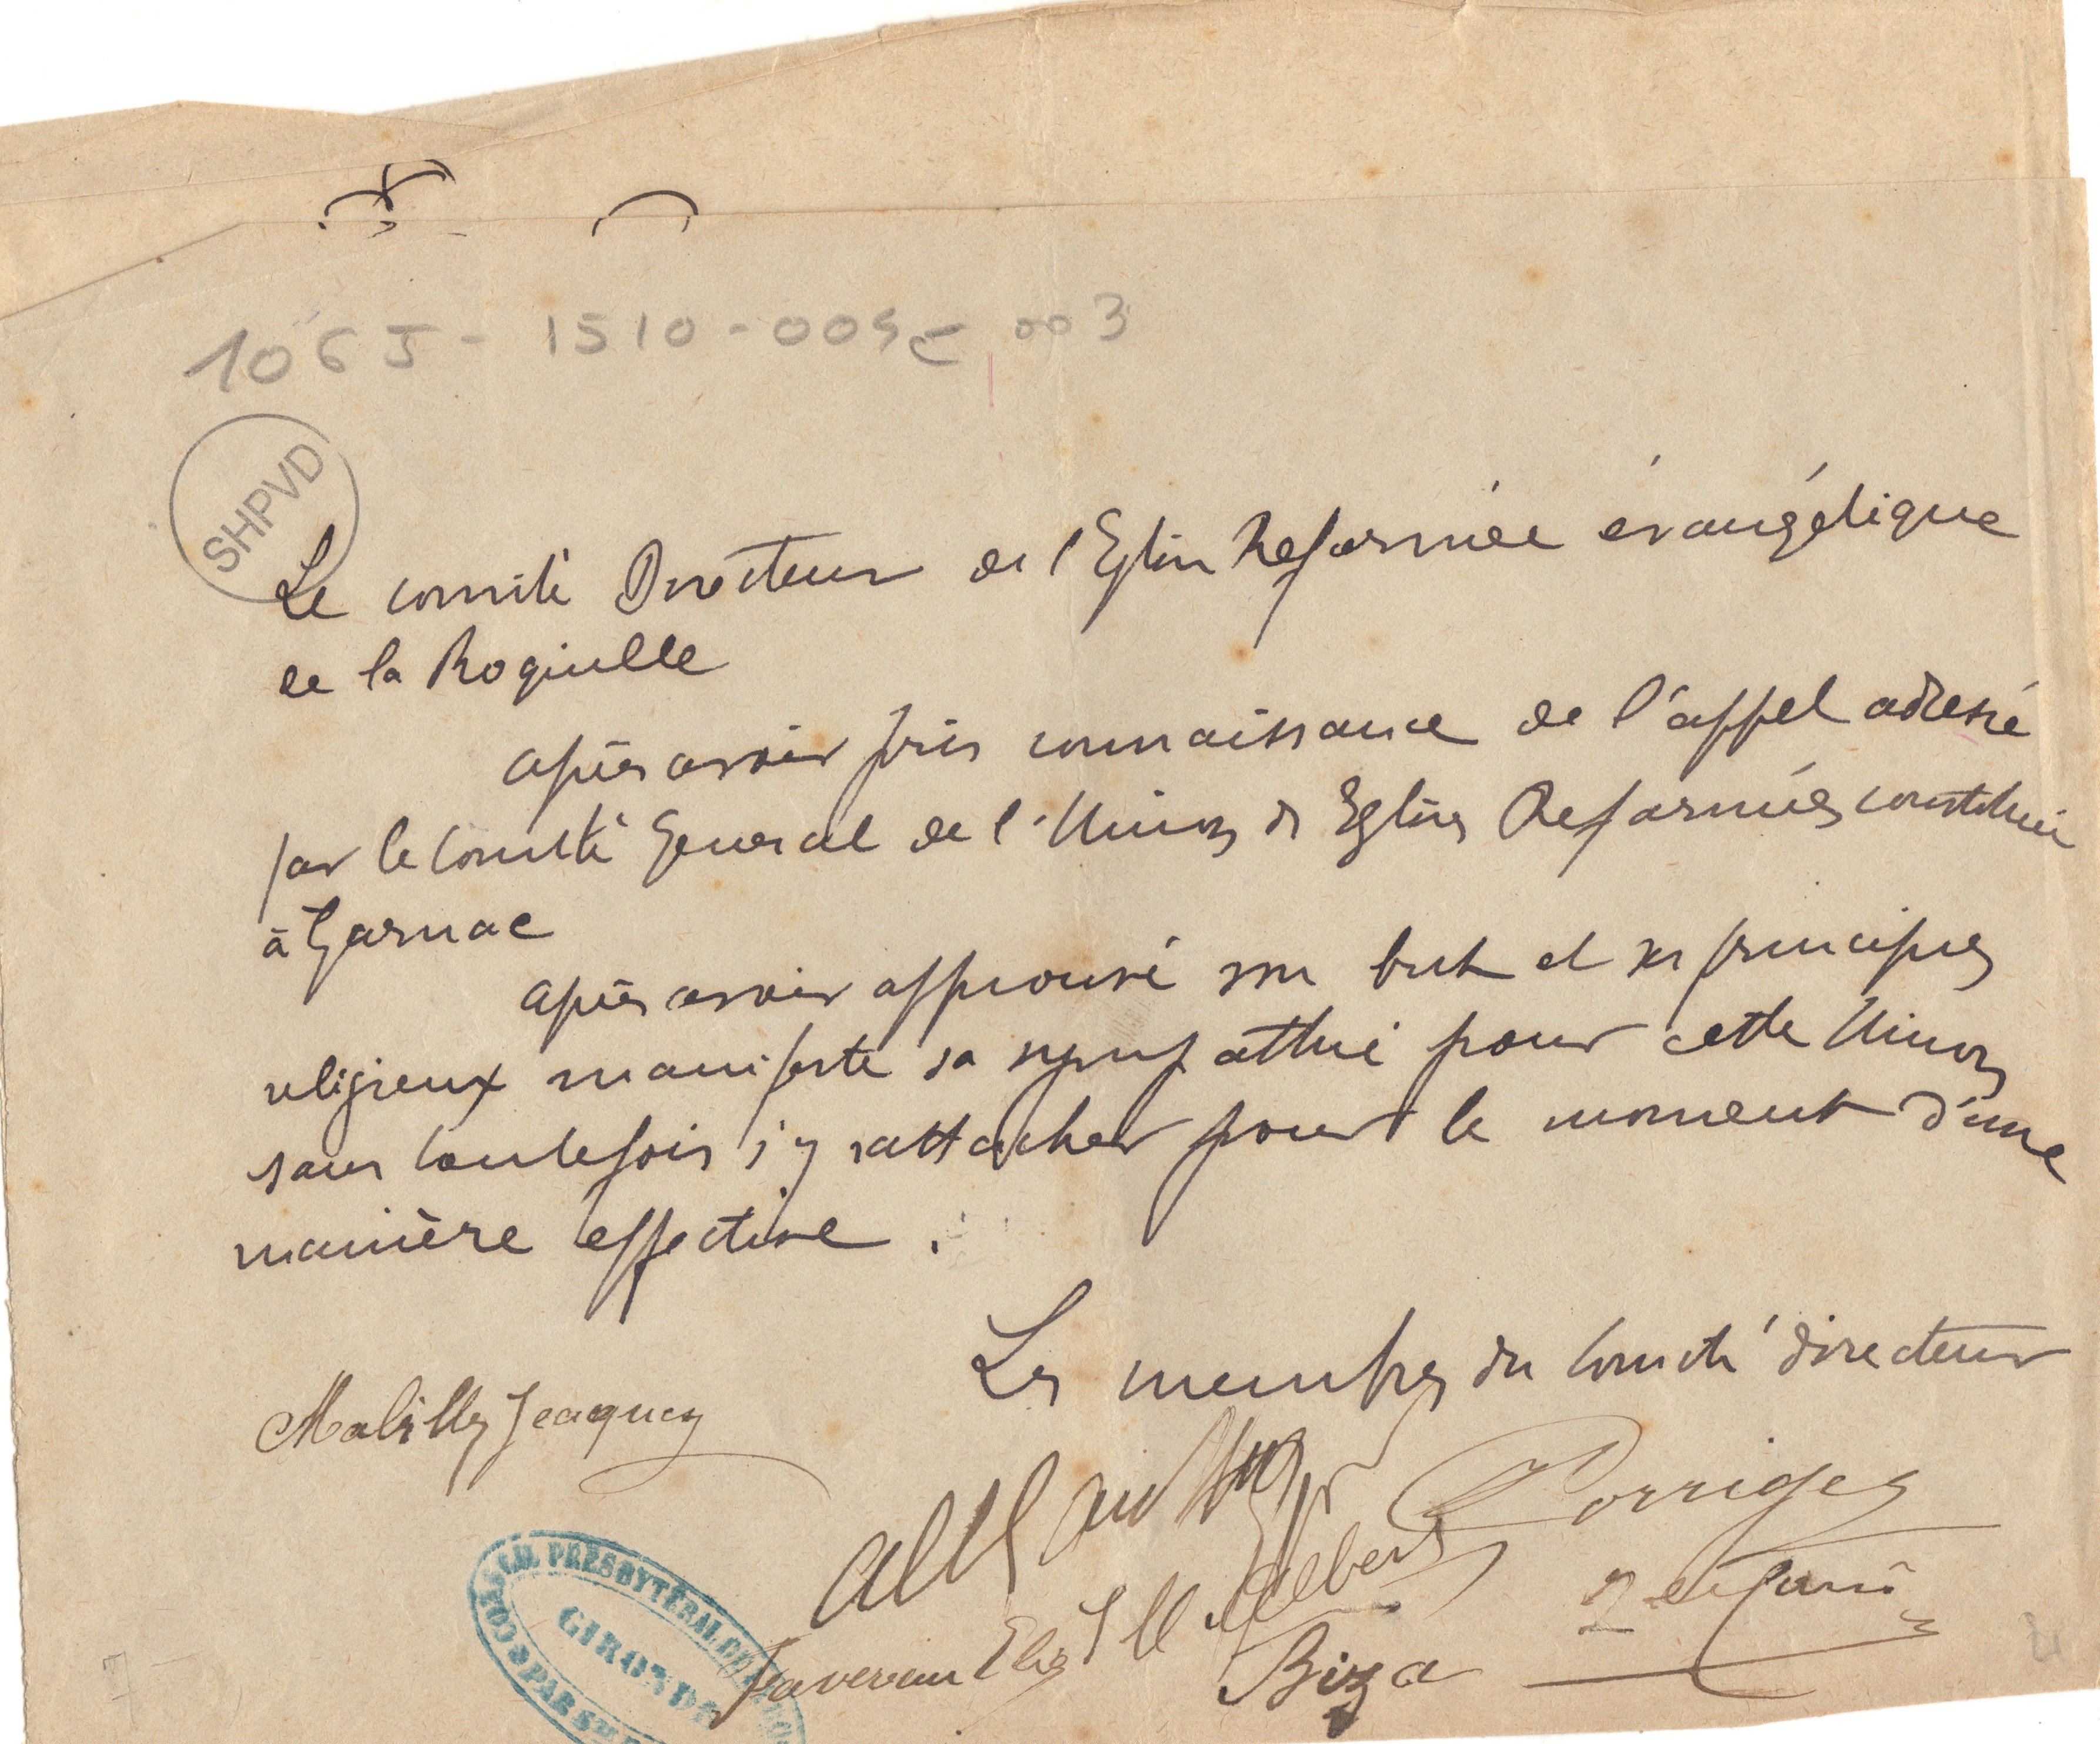 106J - 1510-005 003
SHPVD
Le comité Directeur de l'Eglise Reformée évangélique
de la Roquille
après avoir pris connaissance de l'appel adressé
par le Comité General de l'Union ds Eglises Reformées constituée
à Jarnac
après avoir approuvé son but et ses principes
religieux manifeste sa sympathie pour cette Union
sans toutefois s'y rattacher pour le moment d'une
manière effective.
Les membres du Comité directeur
Malilly Jeaques
Corriges
Javereau Elie
Biza
PRESBYTÉRAL
GIRONDE